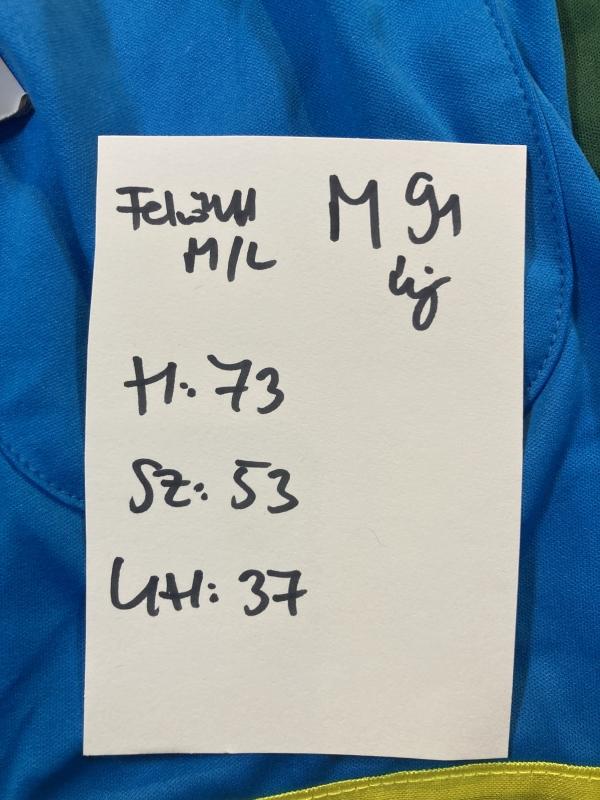 Felnőtt M 91
M/L új
H: 73
SZ: 53
UH: 37